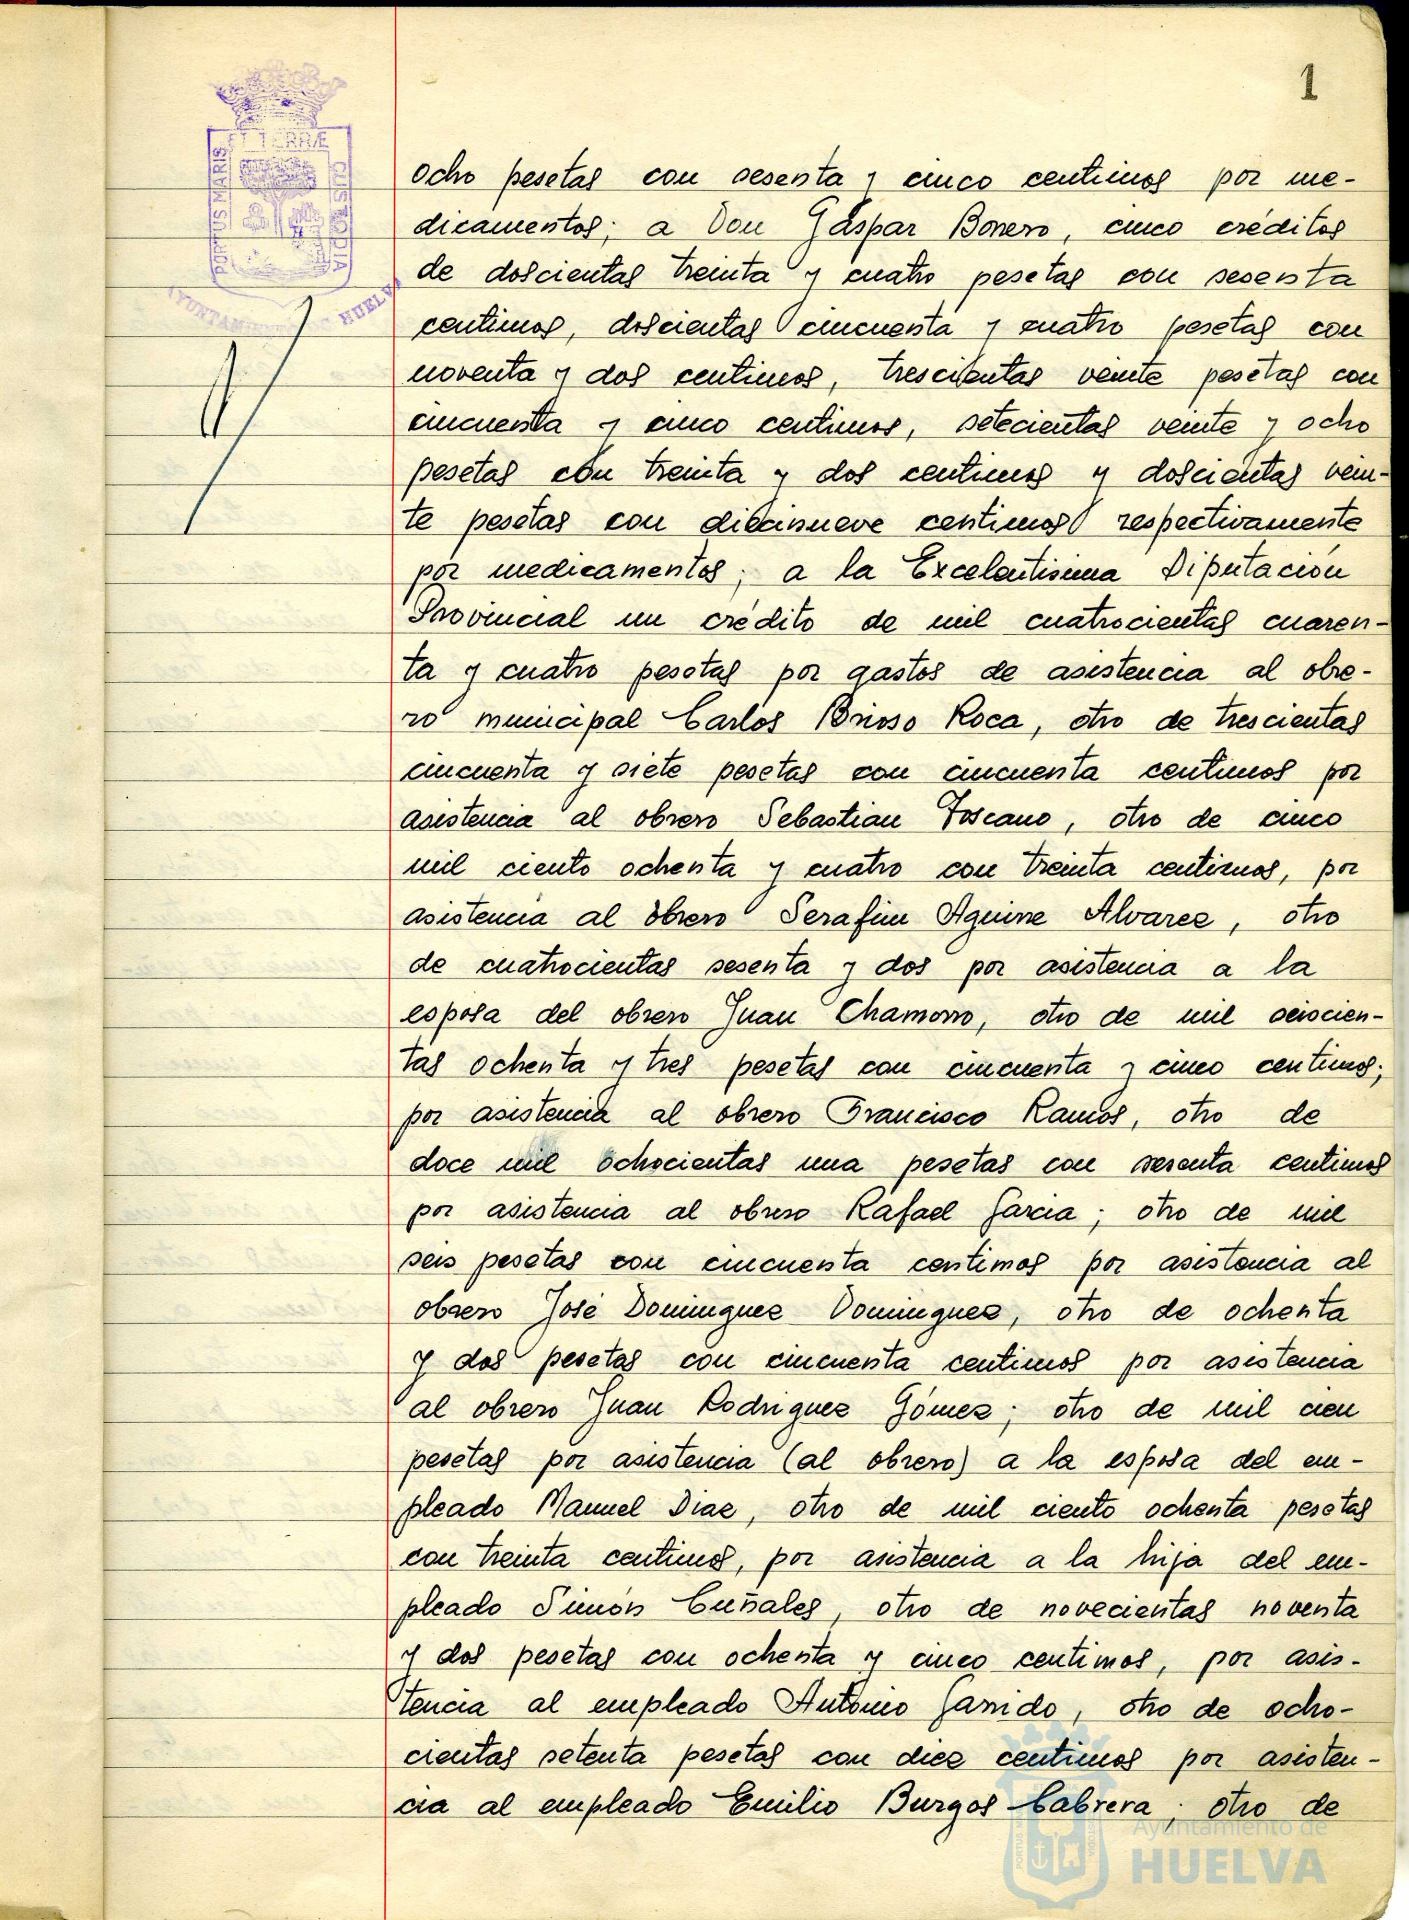 1
ET TERRÆ
PORTUS MARIS
CUSTODIA
AYUNTAMIENTO DE HUELVA
ocho pesetas con sesenta y cinco centimos por me-
dicamentos; a Don Gaspar Borrero, cinco créditos
de doscientas treinta y cuatro pesetas con sesenta
centimos, doscientas cincuenta y cuatro pesetas con
noventa y dos centimos, trescientas veinte pesetas con
cincuenta y cinco centimos, setecientas veinte y ocho
pesetas con treinta y dos centimos y doscientas vein-
te pesetas con diecinueve centimos respectivamente
por medicamentos; a la Excelentisima Diputación
Provincial un crédito de mil cuatrocientas cuaren-
ta y cuatro pesetas por gastos de asistencia al obre-
ro municipal Carlos Brioso Roca, otro de trescientas
cincuenta y siete pesetas con cincuenta centimos por
asistencia al obrero Sebastian Toscano, otro de cinco
mil ciento ochenta y cuatro con treinta centimos, por
asistencia al obrero Serafin Aguirre Alvarez, otro
de cuatrocientas sesenta y dos por asistencia a la
esposa del obrero Juan Chamorro, otro de mil seiscien-
tas ochenta y tres pesetas con cincuenta y cinco centimos;
por asistencia al obrero Francisco Ramos, otro de
doce mil ochocientas una pesetas con sesenta centimos
por asistencia al obrero Rafael Garcia; otro de mil
seis pesetas con cincuenta centimos por asistencia al
obrero José Dominguez Dominguez, otro de ochenta
y dos pesetas con cincuenta centimos por asistencia
al obrero Juan Rodriguez Gómez; otro de mil cien
pesetas por asistencia (al obrero) a la esposa del em-
pleado Manuel Diaz, otro de mil ciento ochenta pesetas
con treinta centimos, por asistencia a la hija del em-
pleado Simón Cuñales, otro de novecientas noventa
y dos pesetas con ochenta y cinco centimos, por asis-
tencia al empleado Antonio Garrido, otro de ocho-
cientas setenta pesetas con diez centimos por asisten-
cia al empleado Emilio Burgos Cabrera; otro de
Ayuntamiento de
HUELVA